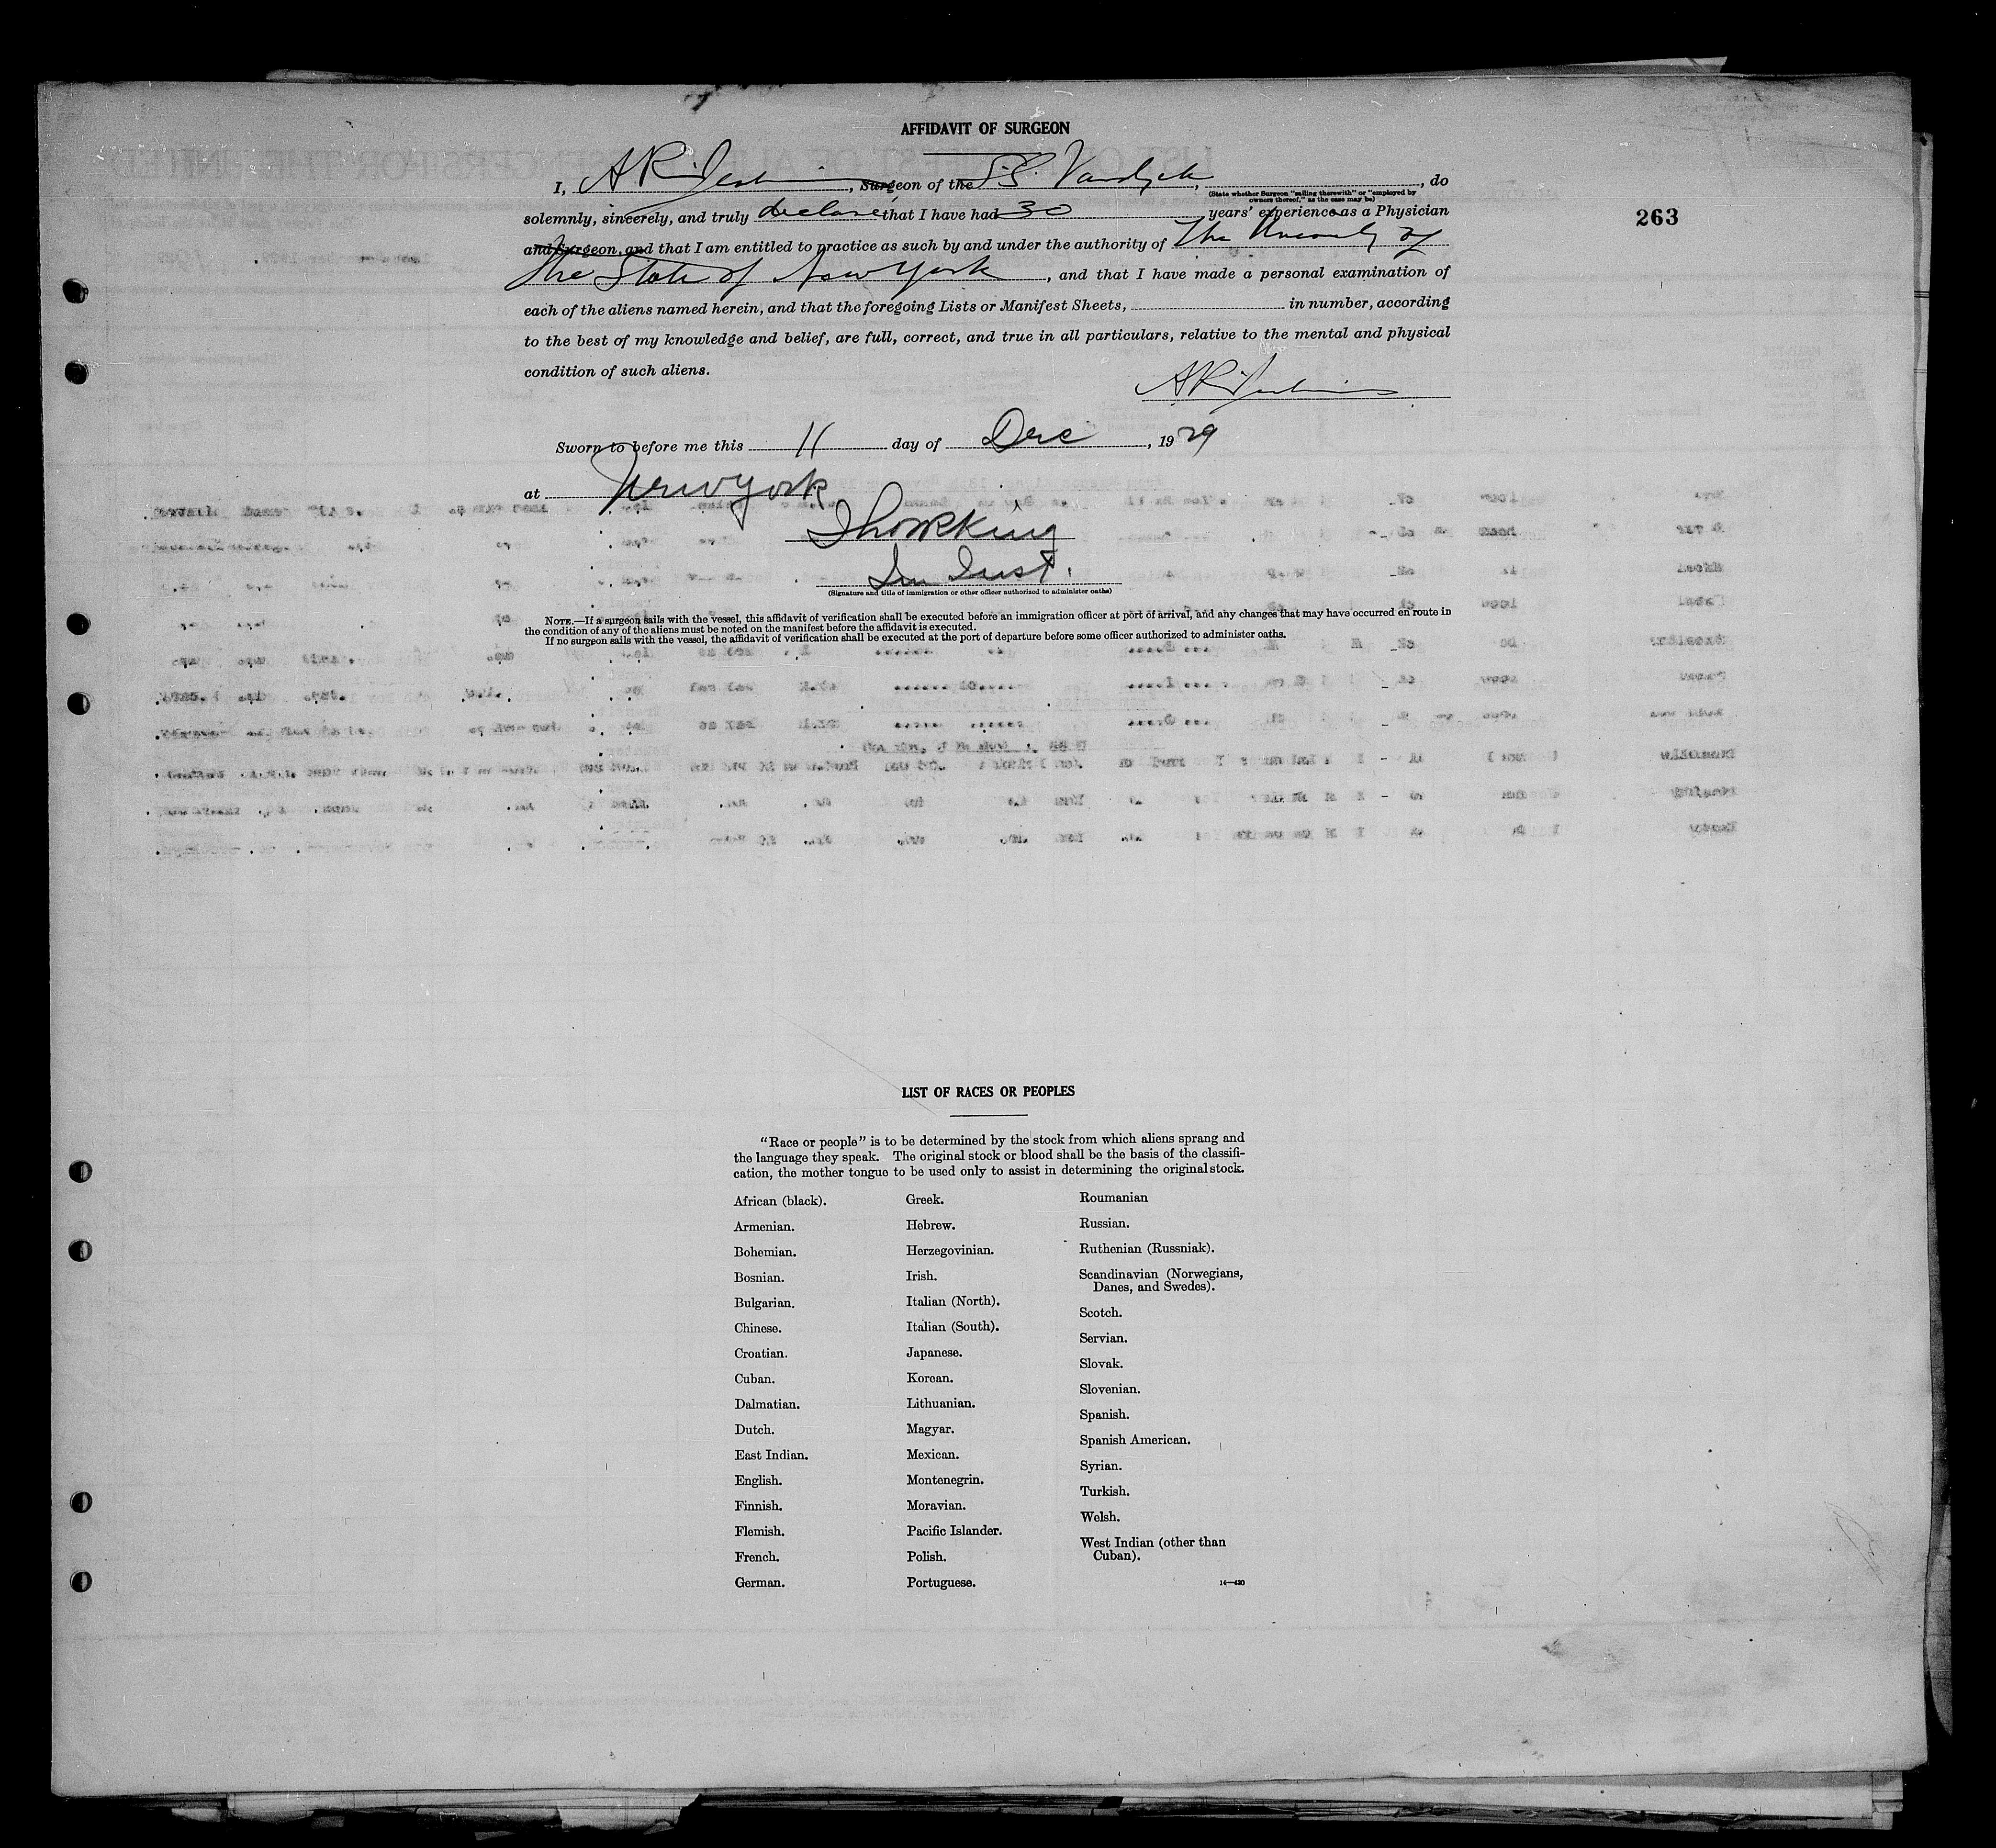 AFFIDAVIT OF SURGEON
I, A R Jenkins, Surgeon of the S.S. Vandyck, , do
(State whether Surgeon "sailing therewith" or "employed by
owners thereof," as the case may be)
solemnly, sincerely, and truly declare that I have had 30 years' experience as a Physician
263
and Surgeon, and that I am entitled to practice as such by and under the authority of The University of
the State of New York, and that I have made a personal examination of
each of the aliens named herein, and that the foregoing Lists or Manifest Sheets, in number, according
to the best of my knowledge and belief, are full, correct, and true in all particulars, relative to the mental and physical
condition of such aliens.
A R Jenkins
Sworn to before me this 11 day of Dec, 1929
at New York
Imm Inst.
(Signature and title of immigration or other officer authorized to administer oaths)
NOTE.—If a surgeon sails with the vessel, this affidavit of verification shall be executed before an immigration officer at port of arrival, and any changes that may have occurred en route in
the condition of any of the aliens must be noted on the manifest before the affidavit is executed.
If no surgeon sails with the vessel, the affidavit of verification shall be executed at the port of departure before some officer authorized to administer oaths.
LIST OF RACES OR PEOPLES
"Race or people" is to be determined by the stock from which aliens sprang and
the language they speak. The original stock or blood shall be the basis of the classifi-
cation, the mother tongue to be used only to assist in determining the original stock.
African (black).
Armenian.
Bohemian.
Bosnian.
Bulgarian.
Chinese.
Croatian.
Cuban.
Dalmatian.
Dutch.
East Indian.
English.
Finnish.
Flemish.
French.
German.
Greek.
Hebrew.
Herzegovinian.
Irish.
Italian (North).
Italian (South).
Japanese.
Korean.
Lithuanian.
Magyar.
Mexican.
Montenegrin.
Moravian.
Pacific Islander.
Polish.
Portuguese.
Roumanian
Russian.
Ruthenian (Russniak).
Scandinavian (Norwegians,
Danes, and Swedes).
Scotch.
Servian.
Slovak.
Slovenian.
Spanish.
Spanish American.
Syrian.
Turkish.
Welsh.
West Indian (other than
Cuban).
14—430